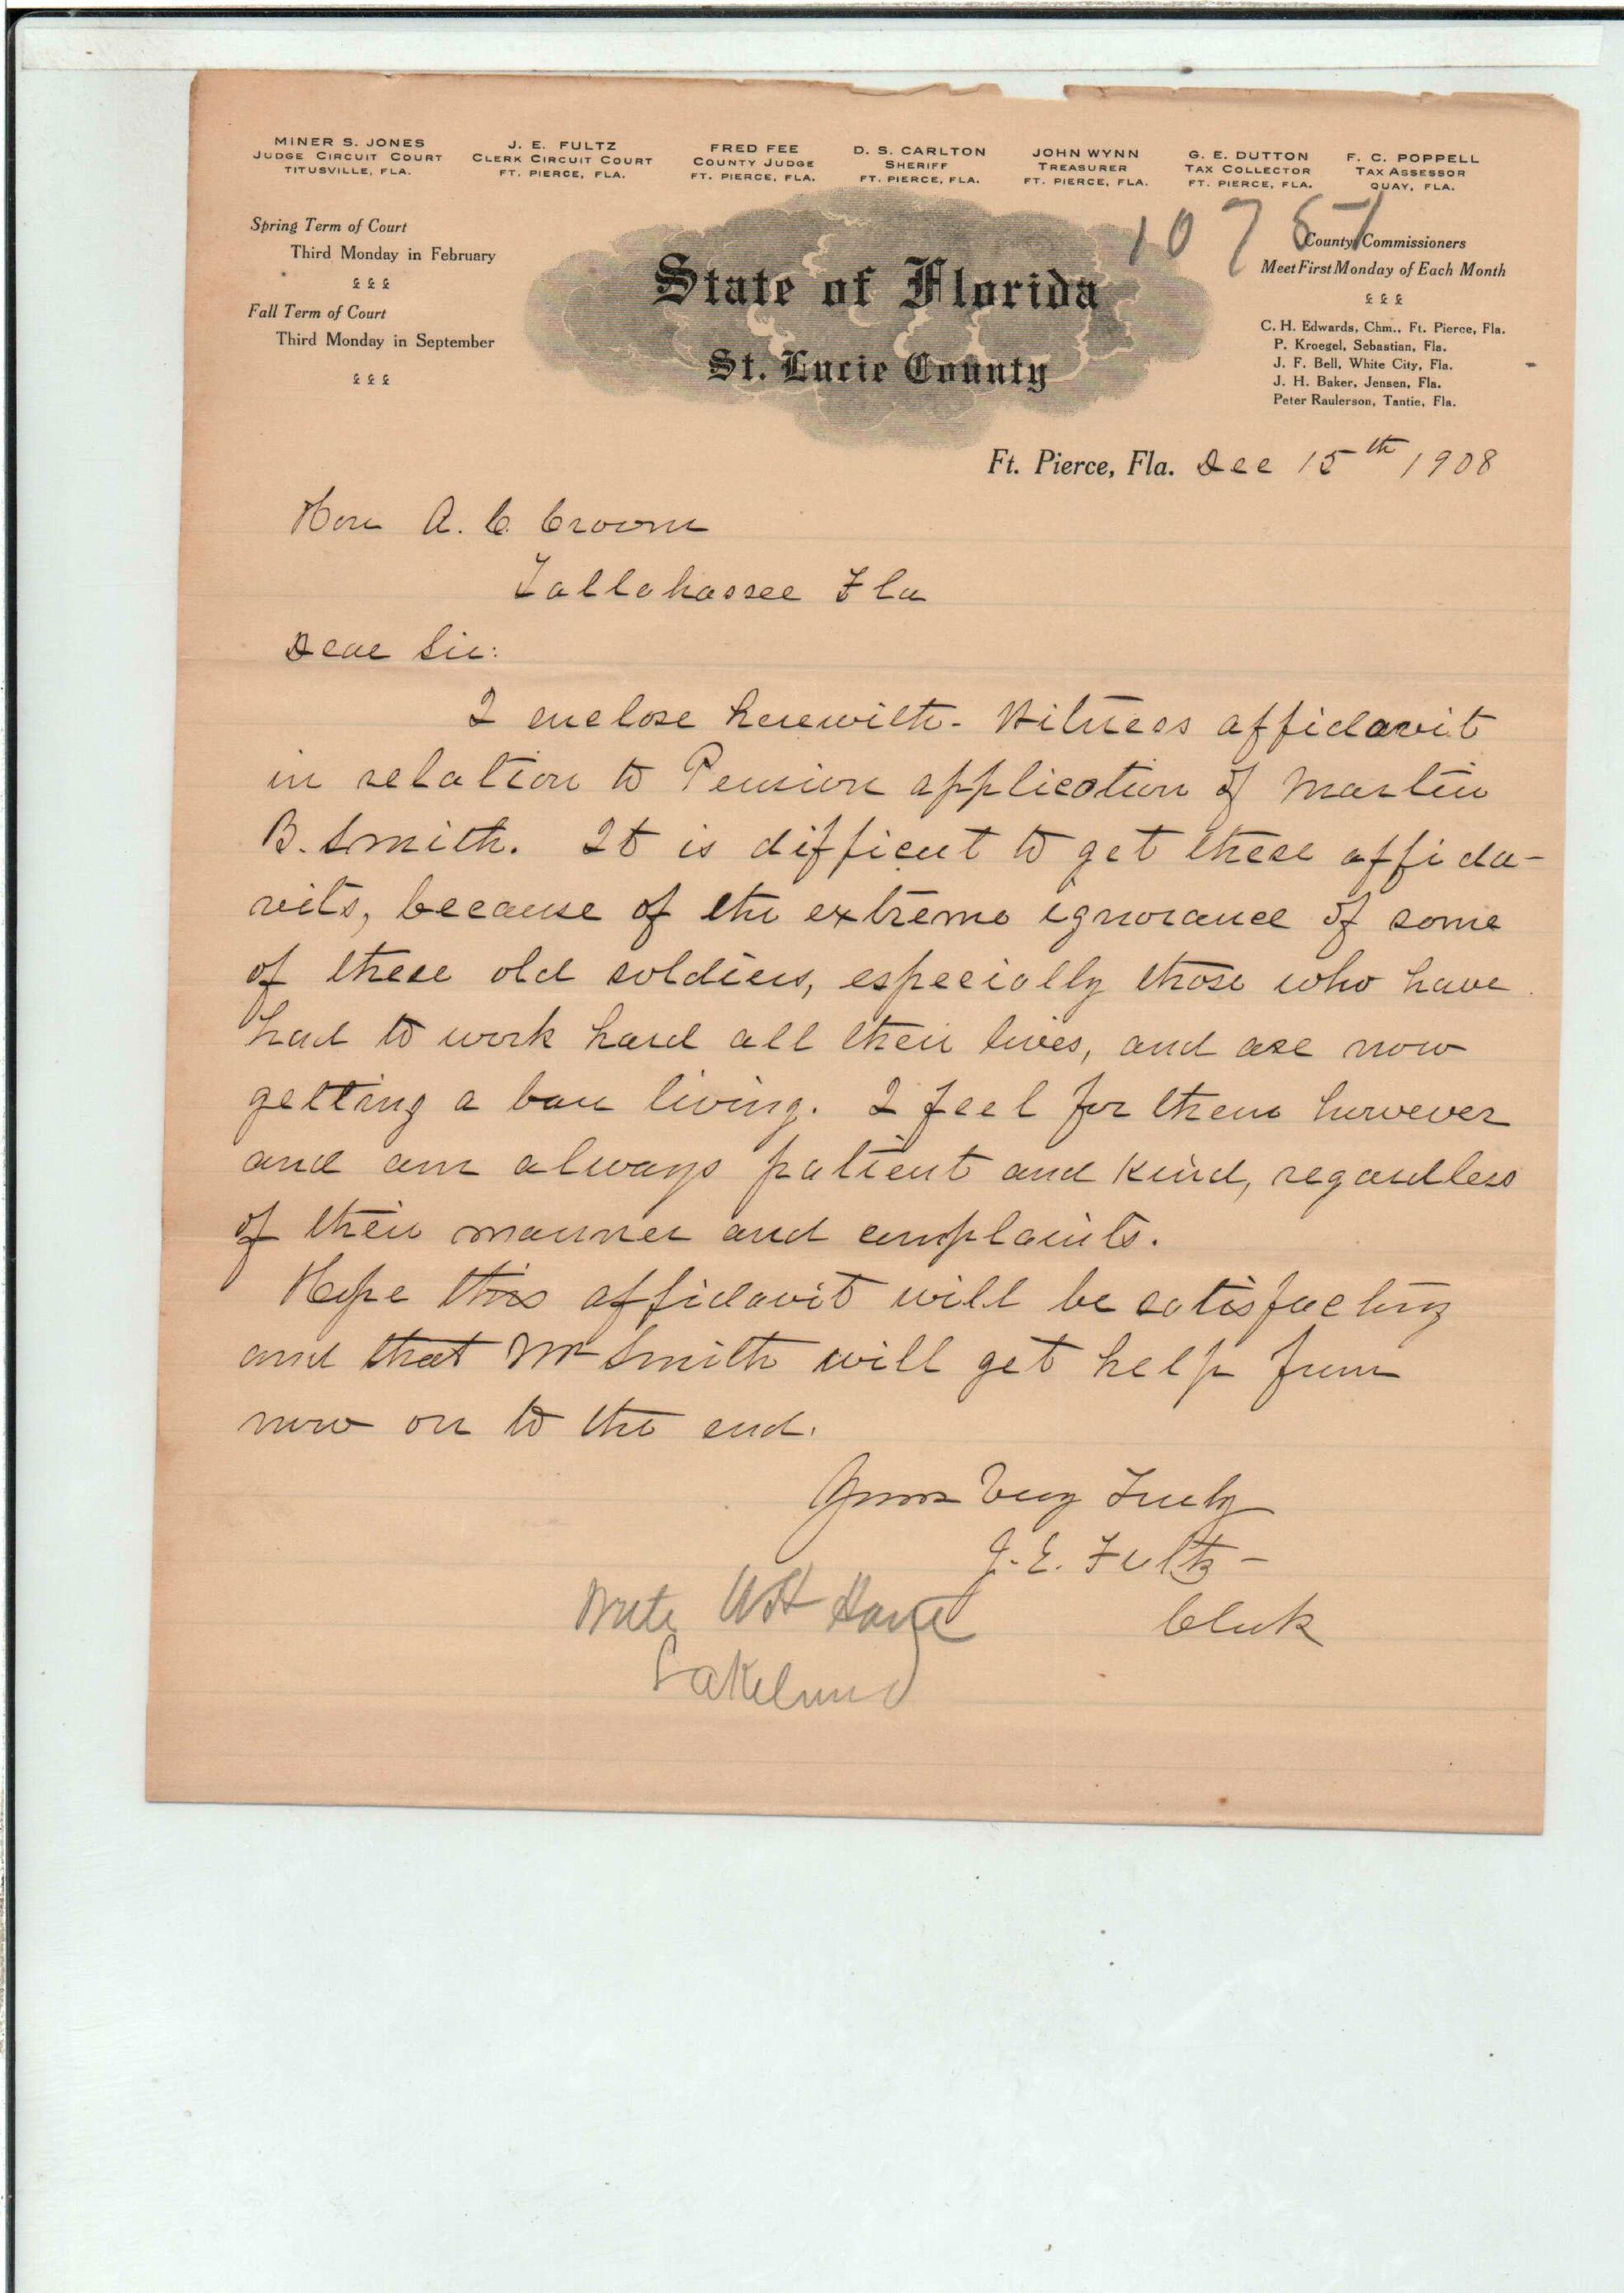 MINER S. JONES
JUDGE CIRCUIT COURT
TITUSVILLE, FLA.
J. E. FULTZ
CLERK CIRCUIT COURT
FT. PIERCE, FLA.
FRED FEE
COUNTY JUDGE
FT. PIERCE, FLA.
D. S. CARLTON
SHERIFF
FT. PIERCE, FLA.
JOHN WYNN
TREASURER
FT. PIERCE, FLA.
G. E. DUTTON
TAX COLLECTOR
FT. PIERCE, FLA.
F. C. POPPELL
TAX ASSESSOR
QUAY, FLA.
Spring Term of Court
Third Monday in February
Fall Term of Court
Third Monday in September
State of Florida
St. Lucie County
County Commissioners
Meet First Monday of Each Month
C. H. Edwards, Chm., Ft. Pierce, Fla.
P. Kroegel, Sebastian, Fla.
J. F. Bell, White City, Fla.
J. H. Baker, Jensen, Fla.
Peter Raulerson, Tantie, Fla.
Ft. Pierce, Fla. Dec 15th 1908
Hon A. C. Croom
Tallahassee Fla
Dear Sir:
I enclose herewith - Witness affidavit
in relation to Pension application of Martin
B. Smith. It is difficut to get these affida-
vits, because of the extreme ignorance of some
of these old soldiers, especially those who have
had to work hard all their lives, and are now
getting a bare living. I feel for them however
and am always patient and kind, regardless
of their manner and complaints.
Hope this affidavit will be satisfactory
and that Mr Smith will get help from
now on to the end.
Yours Very Truly
J. E. Fultz -
Clerk
Write
Lakeland